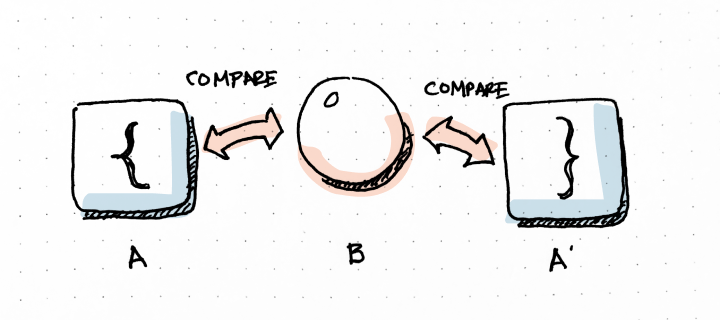 COMPARE
COMPARE
{
}
A
B
A'